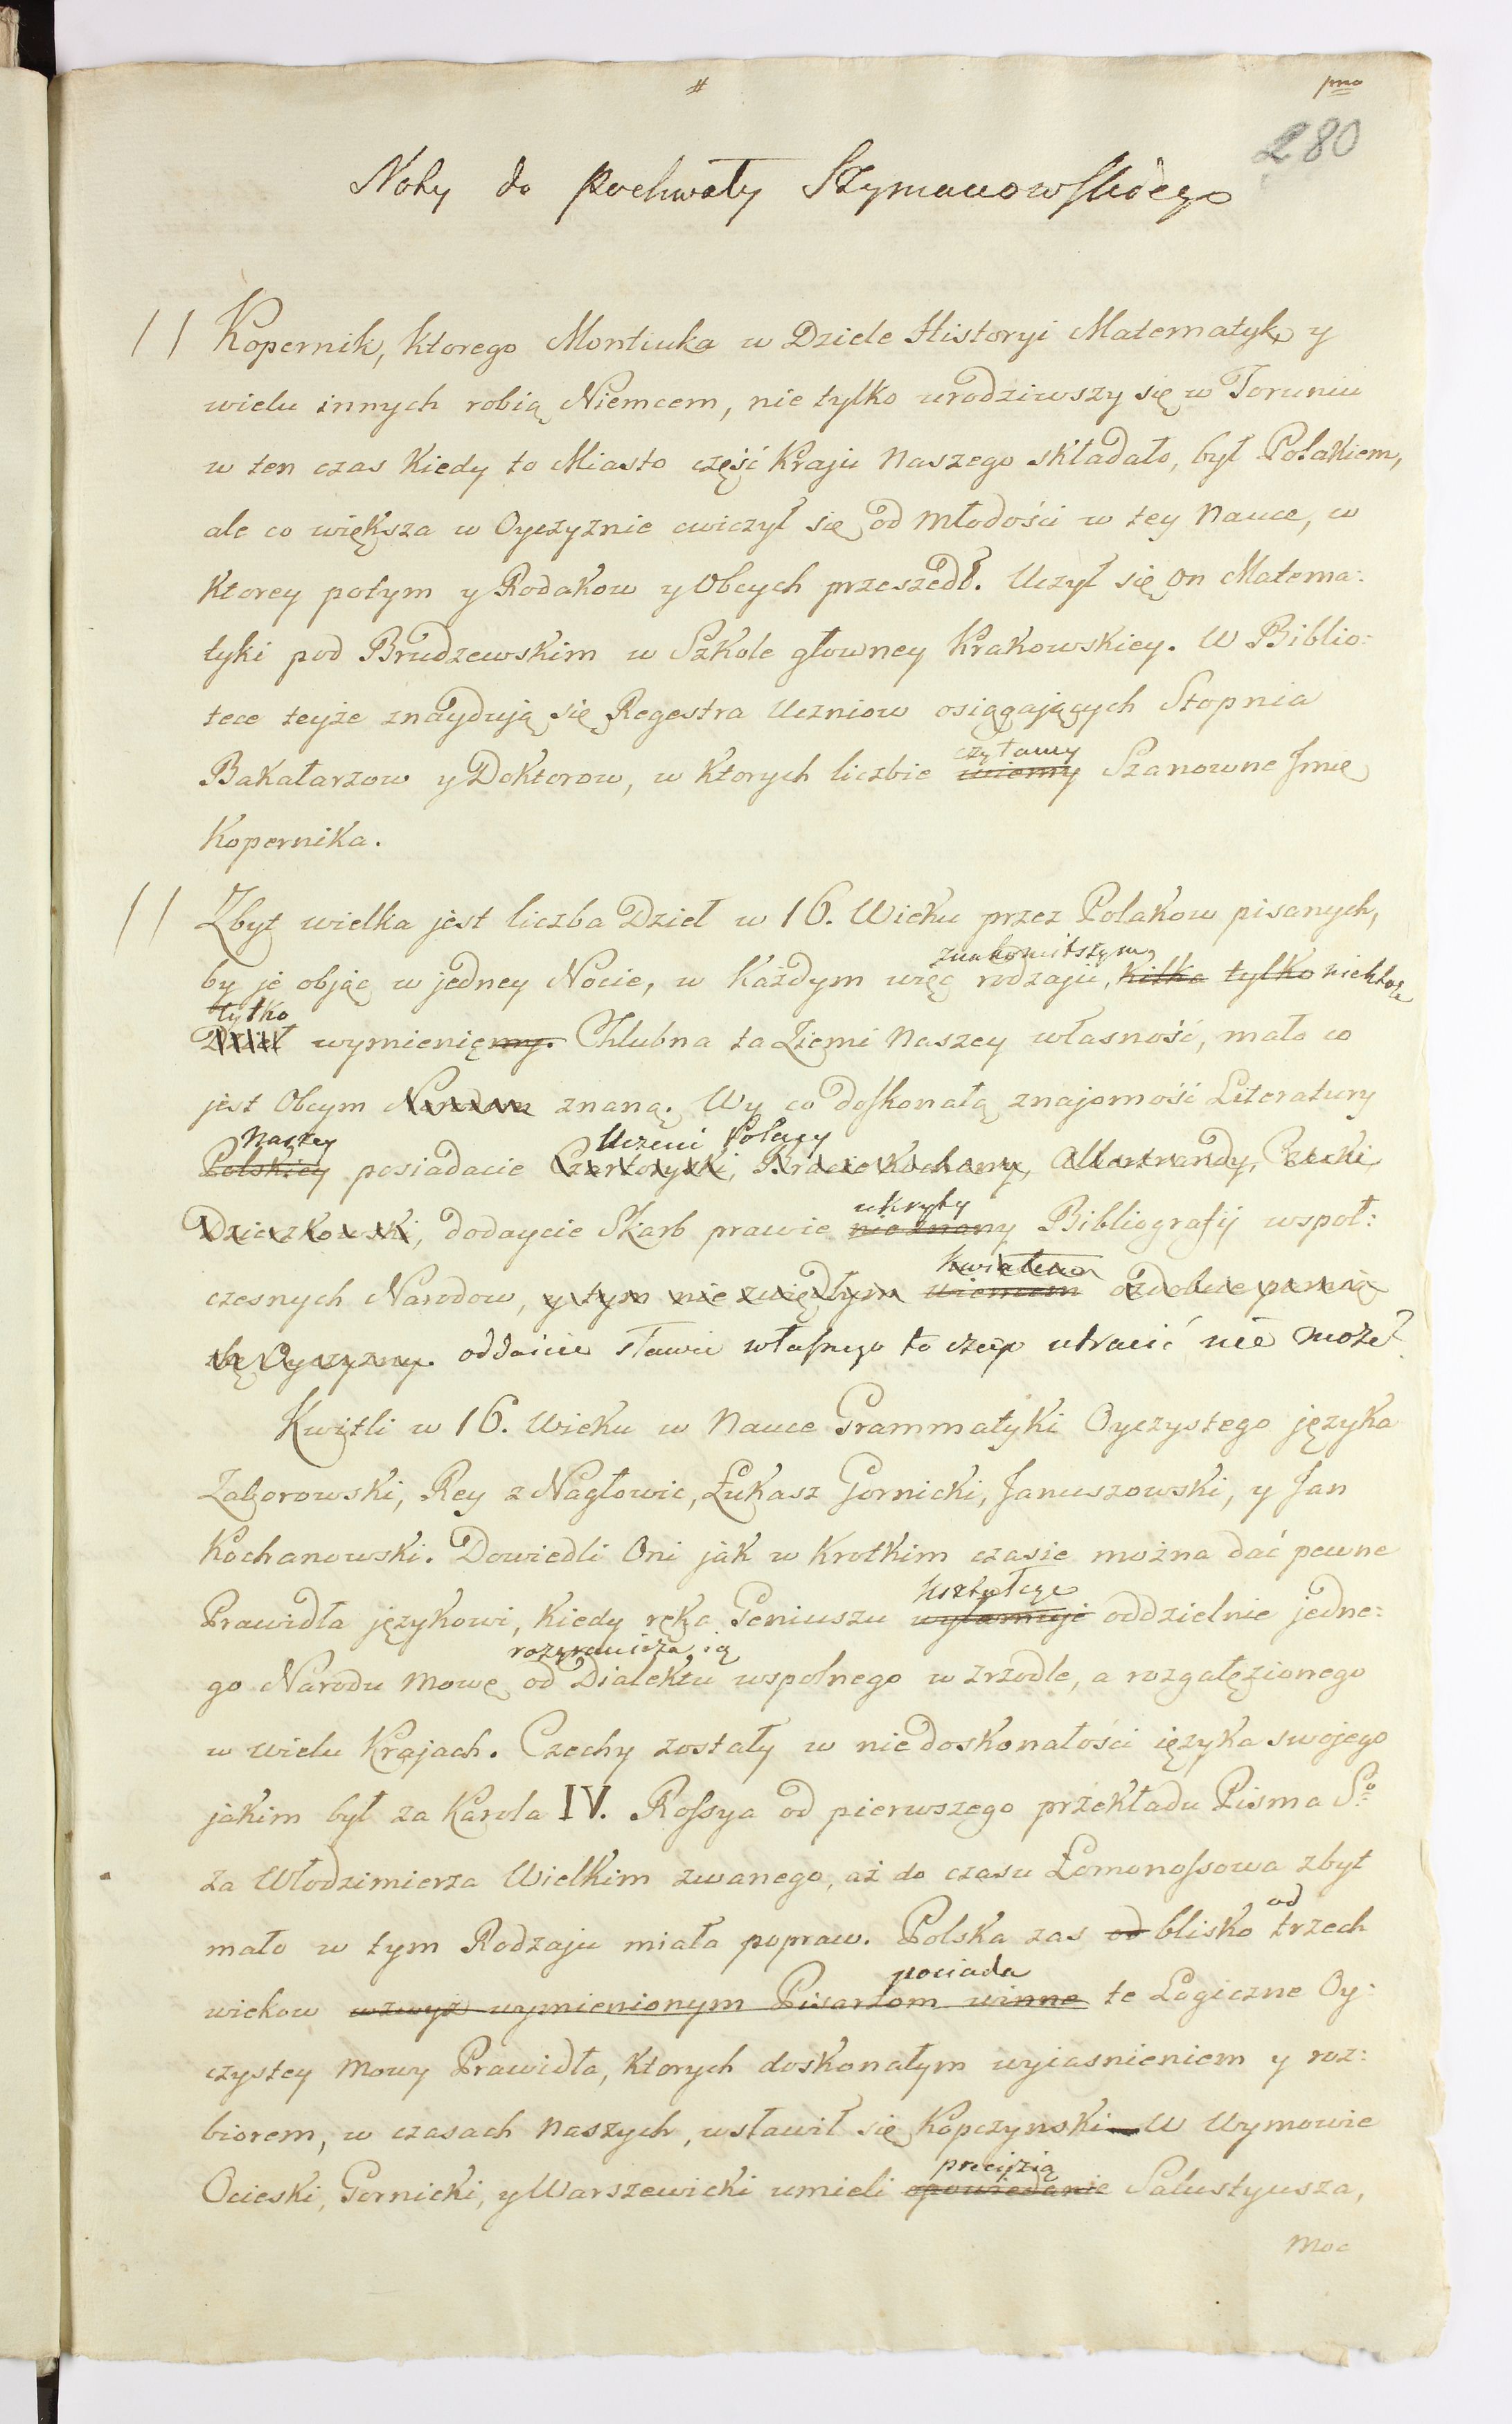 # pmo
280
Noty do pochwały Szymanowskiego
// Kopernik, ktorego Montiuka w Dziele Historyi Matematyk y
wielu innych robią Niemcem, nie tylko urodziwszy się w Toruniu
w ten czas kiedy to Miasto część Kraju naszego składało, był Polakiem,
ale co większa w Oyczyznie cwiczył się od młodości w tey nauce, w
ktorey potym y Rodakow y Obcych przeszedł. Uczył się on Matema:
tyki pod Brudzewskim w Szkole głowney Krakowskiey. W Biblio:
tece teyże znaydują się Regestra Uczniow osiągających Stopnia
czytamy
Bakałarzow y Doktorow, w ktorych liczbie wiemy Szanowne Jmie
Kopernika.
// Zbyt wielka jest liczba Dzieł w 16. Wieku przez Polakow pisanych,
znakomitszym
by je objąć w jedney Nocie, w każdym więc rodzaju, kilka tylko niektore
tylko
Dzieł wymienięmy. Chlubna ta Ziemi naszey własność, mało co
jest Obcym Narodom znaną. Wy co doskonałą znajomość Literatury
naszey Uczeni Polacy
Polskiey posiadacie Czartoryski, Bracie kochany, Albertrandy, Czacki
ukryty
Dzieszkowski, dodaycie Skarb prawie nieznany Bibliografij wspoł:
kwiatem
czesnych Narodow, y tym nie zwiędłym wiencem ozdobcie pamią
tkę Oyczyzny. oddaicie sławie własnego to czego utracić nie może
Kwitli w 16. Wieku w nauce Grammatyki Oyczystego języka
Zaborowski, Rey z Nagłowic, Łukasz Gornicki, Januszowski, y Jan
Kochanowski. Dowiedli Oni jak w krotkim czasie można dać pewne
kształcze
Prawidła językowi, kiedy ręka Geniuszu wyłamuje oddzielnie jedne:
rozgranicza ią
go Narodu mowę od Dialektu wspolnego w zrzodle, a rozgałęzionego
w wielu Krajach. Czechy zostały w niedoskonałości ięzyka swojego
jakim był za Karola IV. Rossya od pierwszego przekładu Pisma So
za Włodzimierza Wielkim zwanego, aż do czasu Łomonossowa zbyt
od
mało w tym Rodzaju miała popraw. Polska zas od blisko trzech
posiada
wiekow wzwyż wymienionym Pisarzom winna te Logiczne Oy:
czystey mowy Prawidła, ktorych doskonałym wyiasnieniem y roz:
biorem, w czasach naszych, wsławił się Kopczynski W Wymowie
precizią
Ocieski, Gornicki, y Warszewicki umieli opowiedanie Salustyusza,
moc